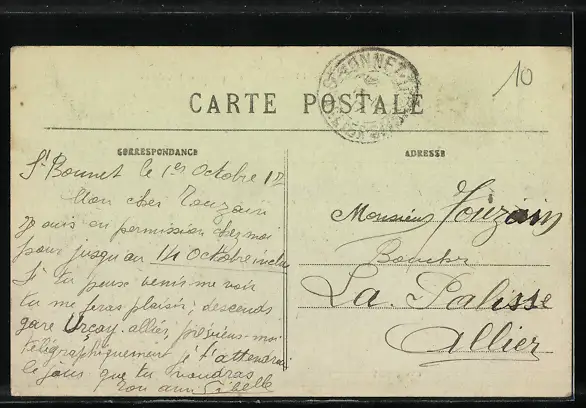 10
CARTE POSTALE
CORRESPONDANCE
ADRESSE
St Bonnet le 1er Octobre 12
Mon cher Touzain
Je suis en permission chez moi
pour jusqu'au 14 Octobre inclus
Si tu peux venir me voir
tu me feras plaisir, descends
gare Urçay. allier, préviens-moi
télégraphiquement je t'attendrai
le jour que tu viendras
ton ami
Monsieur Touzain
Boucher
La Palisse
Allier